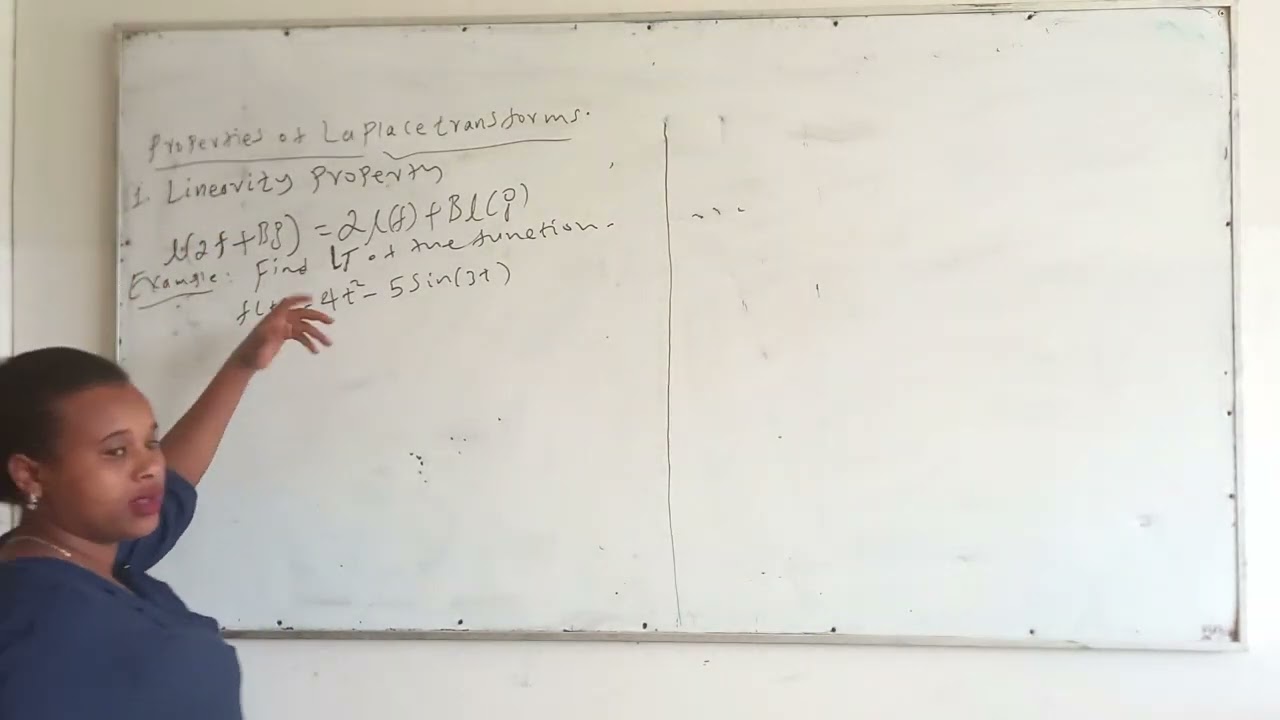 Properties of Laplace transforms.
1. Linearity Property
L(αf + Bg) = αL(f) + BL(g)
Example: Find LT of the function.
f(t) = 4t² - 5 Sin(3t)